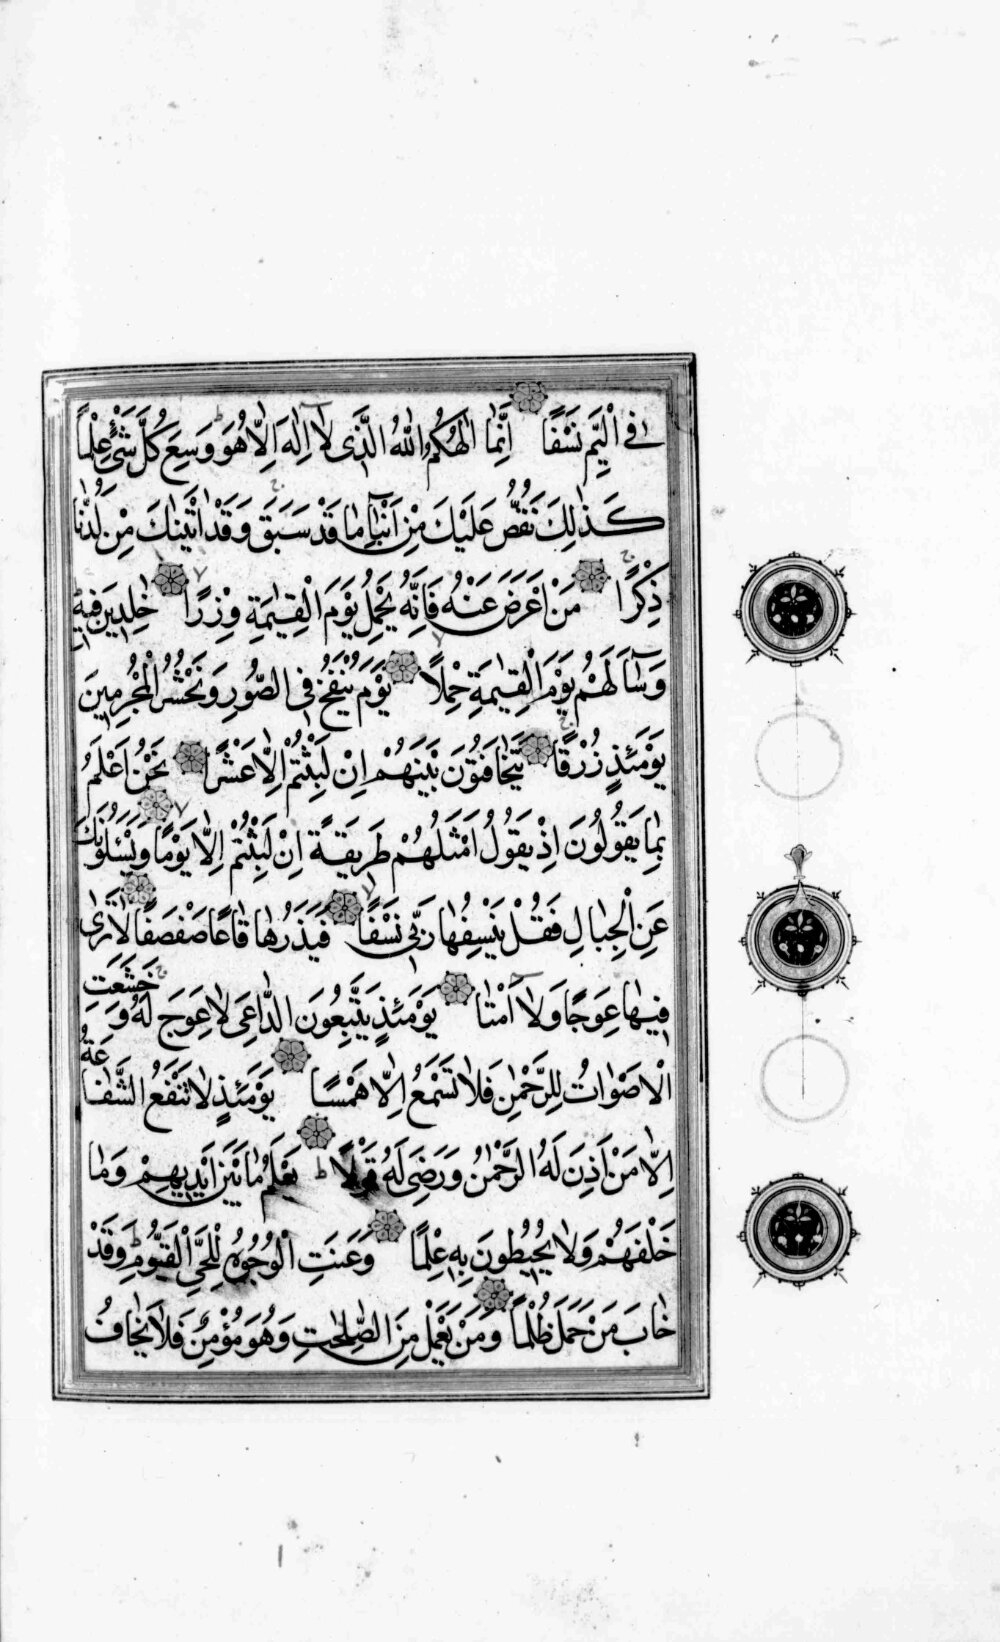 فِي الْيَمِّ نَسْفًا اِنَّمٰا اِلٰهُكُمُ اللّٰهُ الَّذٖى لٰا اِلٰهَ اِلّٰا هُوَ وَسِعَ كُلَّ شَیْءٍ عِلْمًا
كَذٰلِكَ نَقُصُّ عَلَيْكَ مِنْ اَنْبٰٓاءِ مٰا قَدْ سَبَقَ وَقَدْ اٰتَيْنٰاكَ مِنْ لَدُنّٰا
ذِكْرًا مَنْ اَعْرَضَ عَنْهُ فَاِنَّهُ يَحْمِلُ يَوْمَ الْقِيٰمَةِ وِزْرًا خٰلِدٖينَ فٖيهِ
وَسٰٓاءَ لَهُمْ يَوْمَ الْقِيٰمَةِ حِمْلًا يَوْمَ يُنْفَخُ فِي الصُّورِ وَنَحْشُرُ الْمُجْرِمٖينَ
يَوْمَئِذٍ زُرْقًا يَتَخٰافَتُونَ بَيْنَهُمْ اِنْ لَبِثْتُمْ اِلّٰا عَشْرًا نَحْنُ اَعْلَمُ
بِمٰا يَقُولُونَ اِذْ يَقُولُ اَمْثَلُهُمْ طَرٖيقَةً اِنْ لَبِثْتُمْ اِلّٰا يَوْمًا وَيَسْـَٔلُونَكَ
عَنِ الْجِبٰالِ فَقُلْ يَنْسِفُهٰا رَبّٖى نَسْفًا فَيَذَرُهٰا قٰاعًا صَفْصَفًا لٰا تَرٰى
فٖيهٰا عِوَجًا وَلٰا اَمْتًا يَوْمَئِذٍ يَتَّبِعُونَ الدّٰاعِىَ لٰا عِوَجَ لَهُ وَخَشَعَتِ
الْاَصْوٰاتُ لِلرَّحْمٰنِ فَلٰا تَسْمَعُ اِلّٰا هَمْسًا يَوْمَئِذٍ لٰا تَنْفَعُ الشَّفٰاعَةُ
اِلّٰا مَنْ اَذِنَ لَهُ الرَّحْمٰنُ وَرَضِىَ لَهُ قَوْلًا يَعْلَمُ مٰا بَيْنَ اَيْدٖيهِمْ وَمٰا
خَلْفَهُمْ وَلٰا يُحٖيطُونَ بِهٖ عِلْمًا وَعَنَتِ الْوُجُوهُ لِلْحَىِّ الْقَيُّومِ وَقَدْ
خٰابَ مَنْ حَمَلَ ظُلْمًا وَمَنْ يَعْمَلْ مِنَ الصّٰلِحٰاتِ وَهُوَ مُؤْمِنٌ فَلٰا يَخٰافُ